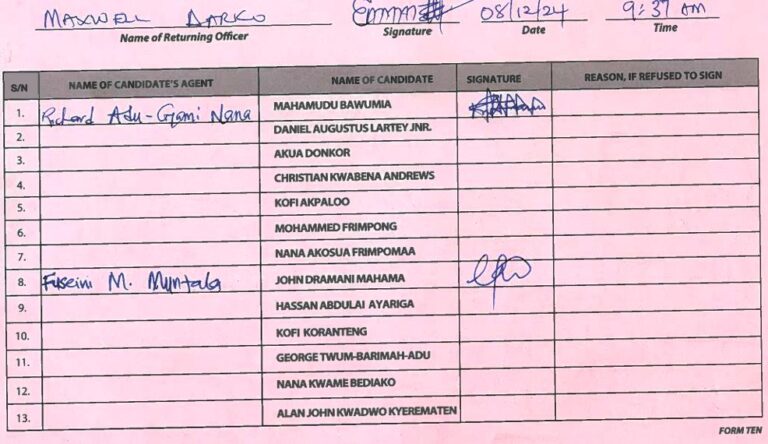 MAXWELL DARKO 08/12/24 9:37 AM
Name of Returning Officer Signature Date Time
S/N NAME OF CANDIDATE'S AGENT NAME OF CANDIDATE SIGNATURE REASON, IF REFUSED TO SIGN
1. Richard Adu-Gyami Nana MAHAMUDU BAWUMIA
2. DANIEL AUGUSTUS LARTEY JNR.
3. AKUA DONKOR
4. CHRISTIAN KWABENA ANDREWS
5. KOFI AKPALOO
6. MOHAMMED FRIMPONG
7. NANA AKOSUA FRIMPOMAA
8. Fuseini M. Muntala JOHN DRAMANI MAHAMA
9. HASSAN ABDULAI AYARIGA
10. KOFI KORANTENG
11. GEORGE TWUM-BARIMAH-ADU
12. NANA KWAME BEDIAKO
13. ALAN JOHN KWADWO KYEREMATEN
FORM TEN